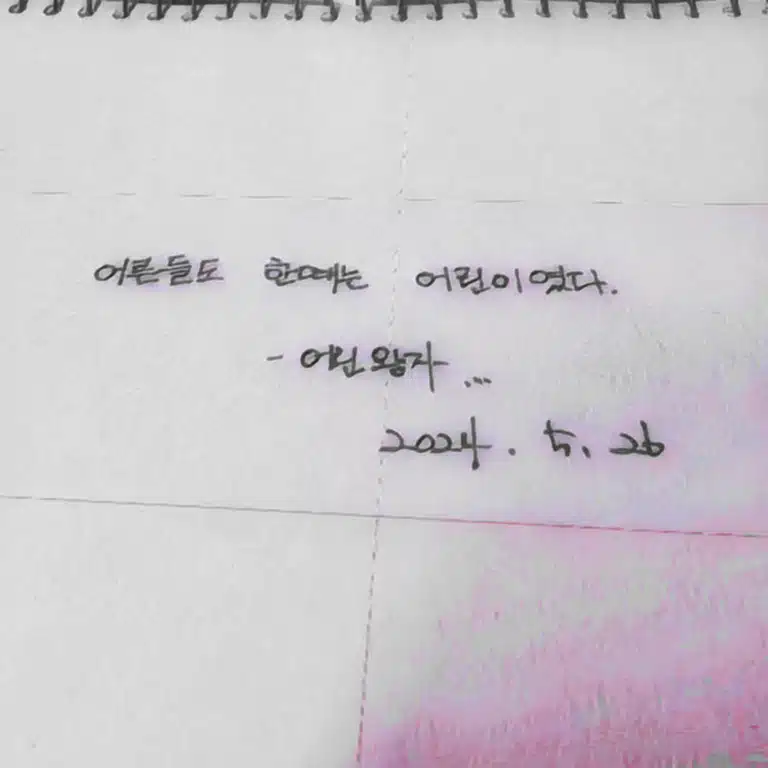 어른들도 한때는 어린이였다.
- 어린왕자 ...
2024. 5. 26